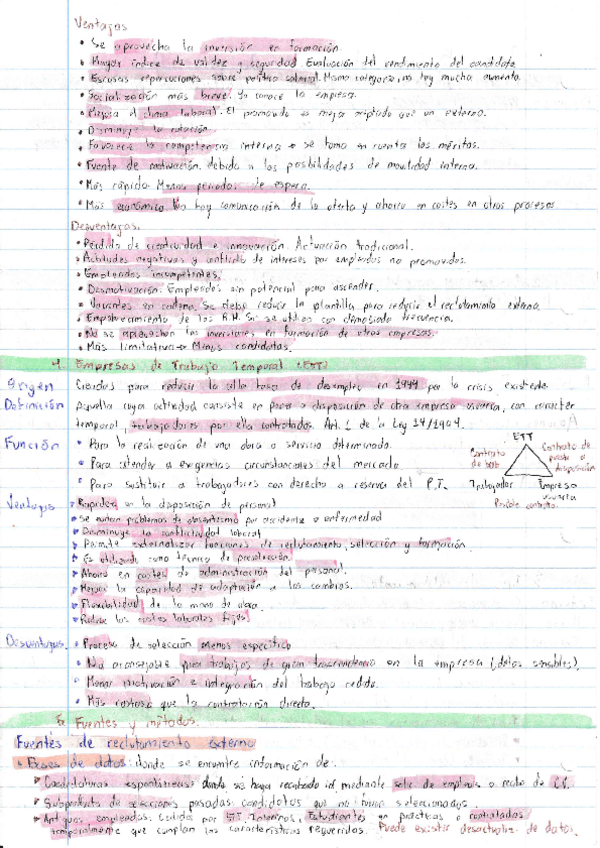 Ventajas
• Se aprovecha la inversión en formación
• Mayor índice de validez y seguridad Evaluación del rendimiento del candidato
• Escasas repercusiones sobre política salarial. Misma categoría, no hay mucho aumento.
• Socialización más breve. Ya conoce la empresa.
• Mejora el clima laboral. El promovido es mejor aceptado que un externo.
• Disminuye la rotación.
• Favorece la competencia interna → se toma en cuenta los méritos.
• Fuente de motivación debido a las posibilidades de movilidad interna.
• Más rápido. Menos periodos de espera.
• Más económico hay comunicación de la oferta y ahorro en costes en otros procesos
Desventajas.
• Pérdida de creatividad e innovación. Actuación tradicional.
• Actitudes negativas y conflicto de intereses por empleados no promovidos.
• Empleados incompetentes.
• Desmotivación. Empleados sin potencial para ascender.
• Vacantes en cadena. Se debe reducir la plantilla para reducir el reclutamiento externo.
• Empobrecimiento de los R.H. Si se utiliza con demasiada frecuencia.
• No se aprovechan las inversiones en formación de otras empresas.
• Más limitativo → Menos candidatos.
4. Empresas de Trabajo Temporal (ETT)
Origen Creadas para reducir la alta tasa de desempleo en 1994 por la crisis existente.
Definición Aquella cuya actividad consiste en poner a disposición de otra empresa usuaria, con carácter
temporal, trabajadores por ella contratados. Art. 1 de la Ley 14/1994.
Función • Para la realización de una obra o servicio determinado.
• Para atender a exigencias circunstanciales del mercado.
• Para sustituir a trabajadores con derecho a reserva del P.T.
ETT
Contrato de
Contrato de puesta a disposición
Trabajador Empresa usuaria
Ventajas • Rapidez en la disposición de personal
• Se evitan problemas de absentismo por accidente o enfermedad
• Disminuye la conflictividad laboral
• Permite externalizar funciones de reclutamiento, selección y formación.
• Es utilizado como técnica de preselección.
• Ahorro en costes de administración del personal.
• Mejora la capacidad de adaptación a los cambios.
• Flexibilidad de la mano de obra.
• Reduce los costes laborales fijos
Desventajas. • Proceso de selección menos específico
• No aconsejable para trabajos de gran trascendencia en la empresa (datos sensibles).
• Menor motivación e integración del trabajo cedido.
• Más costosa que la contratación directa.
5. Fuentes y métodos.
Fuentes de reclutamiento externo
• Bases de datos: donde se encuentra información de:
Candidaturas espontáneas: donde se haya recabado inf. mediante solic. de empleo o recibo de CV.
• Subproducto de selecciones pasadas: candidatos que no fueron seleccionados.
Antiguos empleados, cedidos por ETT. Internos, Estudiantes en prácticas o contratados
temporalmente que cumplan las características requeridas. Puede existir desactualiz. de datos.